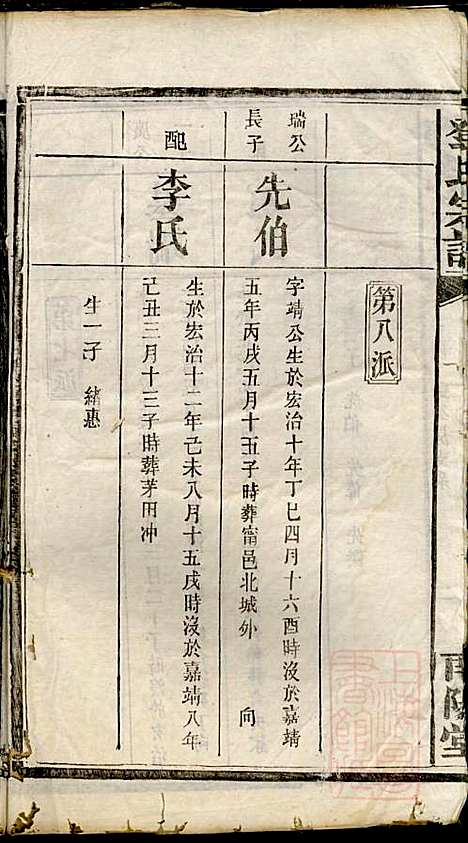 第八派
瑞公
長子
先伯
字靖公生於宏治十年丁巳四月十六酉時沒於嘉靖
五年丙戌五月十五子時葬甯邑北城外 向
配
李氏
生於宏治十二年己未八月十五戌時沒於嘉靖八年
己丑三月十三子時葬茅田冲
生一子 緒惠
劉氏宗譜